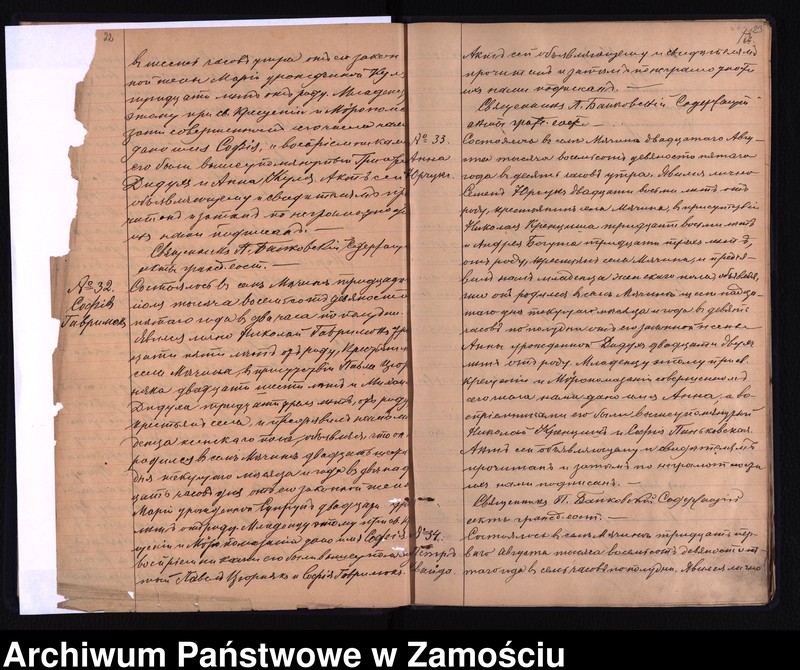 22
въ шесть часовъ утра отъ его закон
ной жены Маріи урожденной Кулъ
тридцати лѣтъ отъ роду. Младенцу
этому при св. крещеніи и Мѵропома
заніи совершенномъ сего числа нами
дано имя Софія, а воспріемниками
его были вышеупомянутый Григорій
Дидухъ и Анна Кулъ. Актъ сей
объявляющему и свидѣтелямъ про
читанъ и затѣмъ по неграмотности
ихъ нами подписанъ. —
Священникъ П. Баньковскій, Содержащій
акты гражд. сост. —
№ 32.
Софія
Гаврилюкъ
Состоялось въ селѣ Мячинѣ тридцатаго
Іюля тысяча восемьсотъ девяносто
пятаго года въ два часа по полудни.
Явился лично Николай Гаврилюкъ
цати пяти лѣтъ отъ роду, крестьянинъ
села Мячина, въ присутствіи Павла
двадцати шести лѣтъ и
Дидуха тридцати лѣтъ отъ роду
крестьянъ села, и предъявилъ намъ мла
денца женскаго пола, объявляя, что онъ
родился въ селѣ Мячинѣ двадцать
дня текущаго мѣсяца и года въ двѣнад
цать часовъ дня отъ его законной жены
Маріи урожденной двадцати
лѣтъ отъ роду. Младенцу этому при св. кре
щеніи и Мѵропомазаніи дано имя Софія, а
воспріемниками его были вышеупомяну
тый Павелъ и Софія Гаврилюкъ.
23
Актъ сей объявляющему и свидѣтелямъ
прочитанъ и затѣмъ по неграмотности
ихъ нами подписанъ. —
Священникъ П. Баньковскій Содержащій
акты гражд. сост. —
№ 33.
Анна
Юрчукъ.
Состоялось въ селѣ Мячинѣ двадцатаго Авгу
ста тысяча восемьсотъ девяносто пятаго
года въ девять часовъ утра. Явился лично
Семенъ Юрчукъ двадцати восьми лѣтъ отъ
роду, крестьянинъ села Мячина, въ присутствіи
Николая тридцати восьми лѣтъ
и Андрея тридцати трехъ лѣтъ,
отъ роду, крестьянъ села Мячина, и предъя
вилъ намъ младенца женскаго пола, объявляя,
что онъ родился въ селѣ Мячинѣ
таго дня текущаго мѣсяца и года въ девять
часовъ по полудни отъ его законной жены
Анны урожденной Дидухъ двадцати двухъ
лѣтъ отъ роду. Младенцу этому при св.
крещеніи и Мѵропомазаніи совершенномъ
сего числа нами дано имя Анна, а во-
спріемниками его были вышеупомянутый
Николай и Софія Паньковская.
Актъ сей объявляющему и свидѣтелямъ
прочитанъ и затѣмъ по неграмотности
ихъ нами подписанъ. —
Священникъ П. Баньковскій Содержащій
акты гражд. сост. —
№ 34.
Петръ
Состоялось въ селѣ Мячинѣ тридцать пер-
ваго Августа тысяча восемьсотъ девяносто пя-
таго года въ семь часовъ по полудни. Явился лично
Archiwum Państwowe w Zamościu